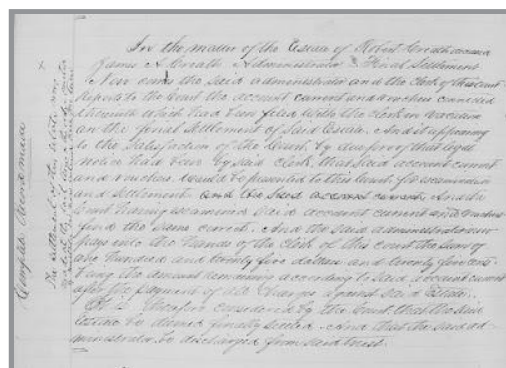 In the matter of the Estate of Robert Creath deceased
James A Creath Administrator Final Settlement
Now comes the said administrator and the Clerk of this court
Reports to the Court the account current and vouchers canceled
therewith which had been filed with the clerk in vacation
on the final settlement of said Estate. And it appearing
to the satisfaction of the Court, by due proof that legal
notice had been by said clerk, that said account current
and vouchers would be presented to this Court for examination
and settlement and the said account current, And the
Court having examined said account current and vouchers
find the same correct. And the said administrator now
pays into the hands of the Clerk of this court the sum of
one hundred and twenty five dollars and twenty five cents
being the amount remaining according to said account current
after the payment of all charges against said Estate.
It is therefore considered by the Court that the said
Estate be deemed finally settled. And that the said ad-
ministrator be discharged from said trust.
Complete Record made
The settlement of this estate was